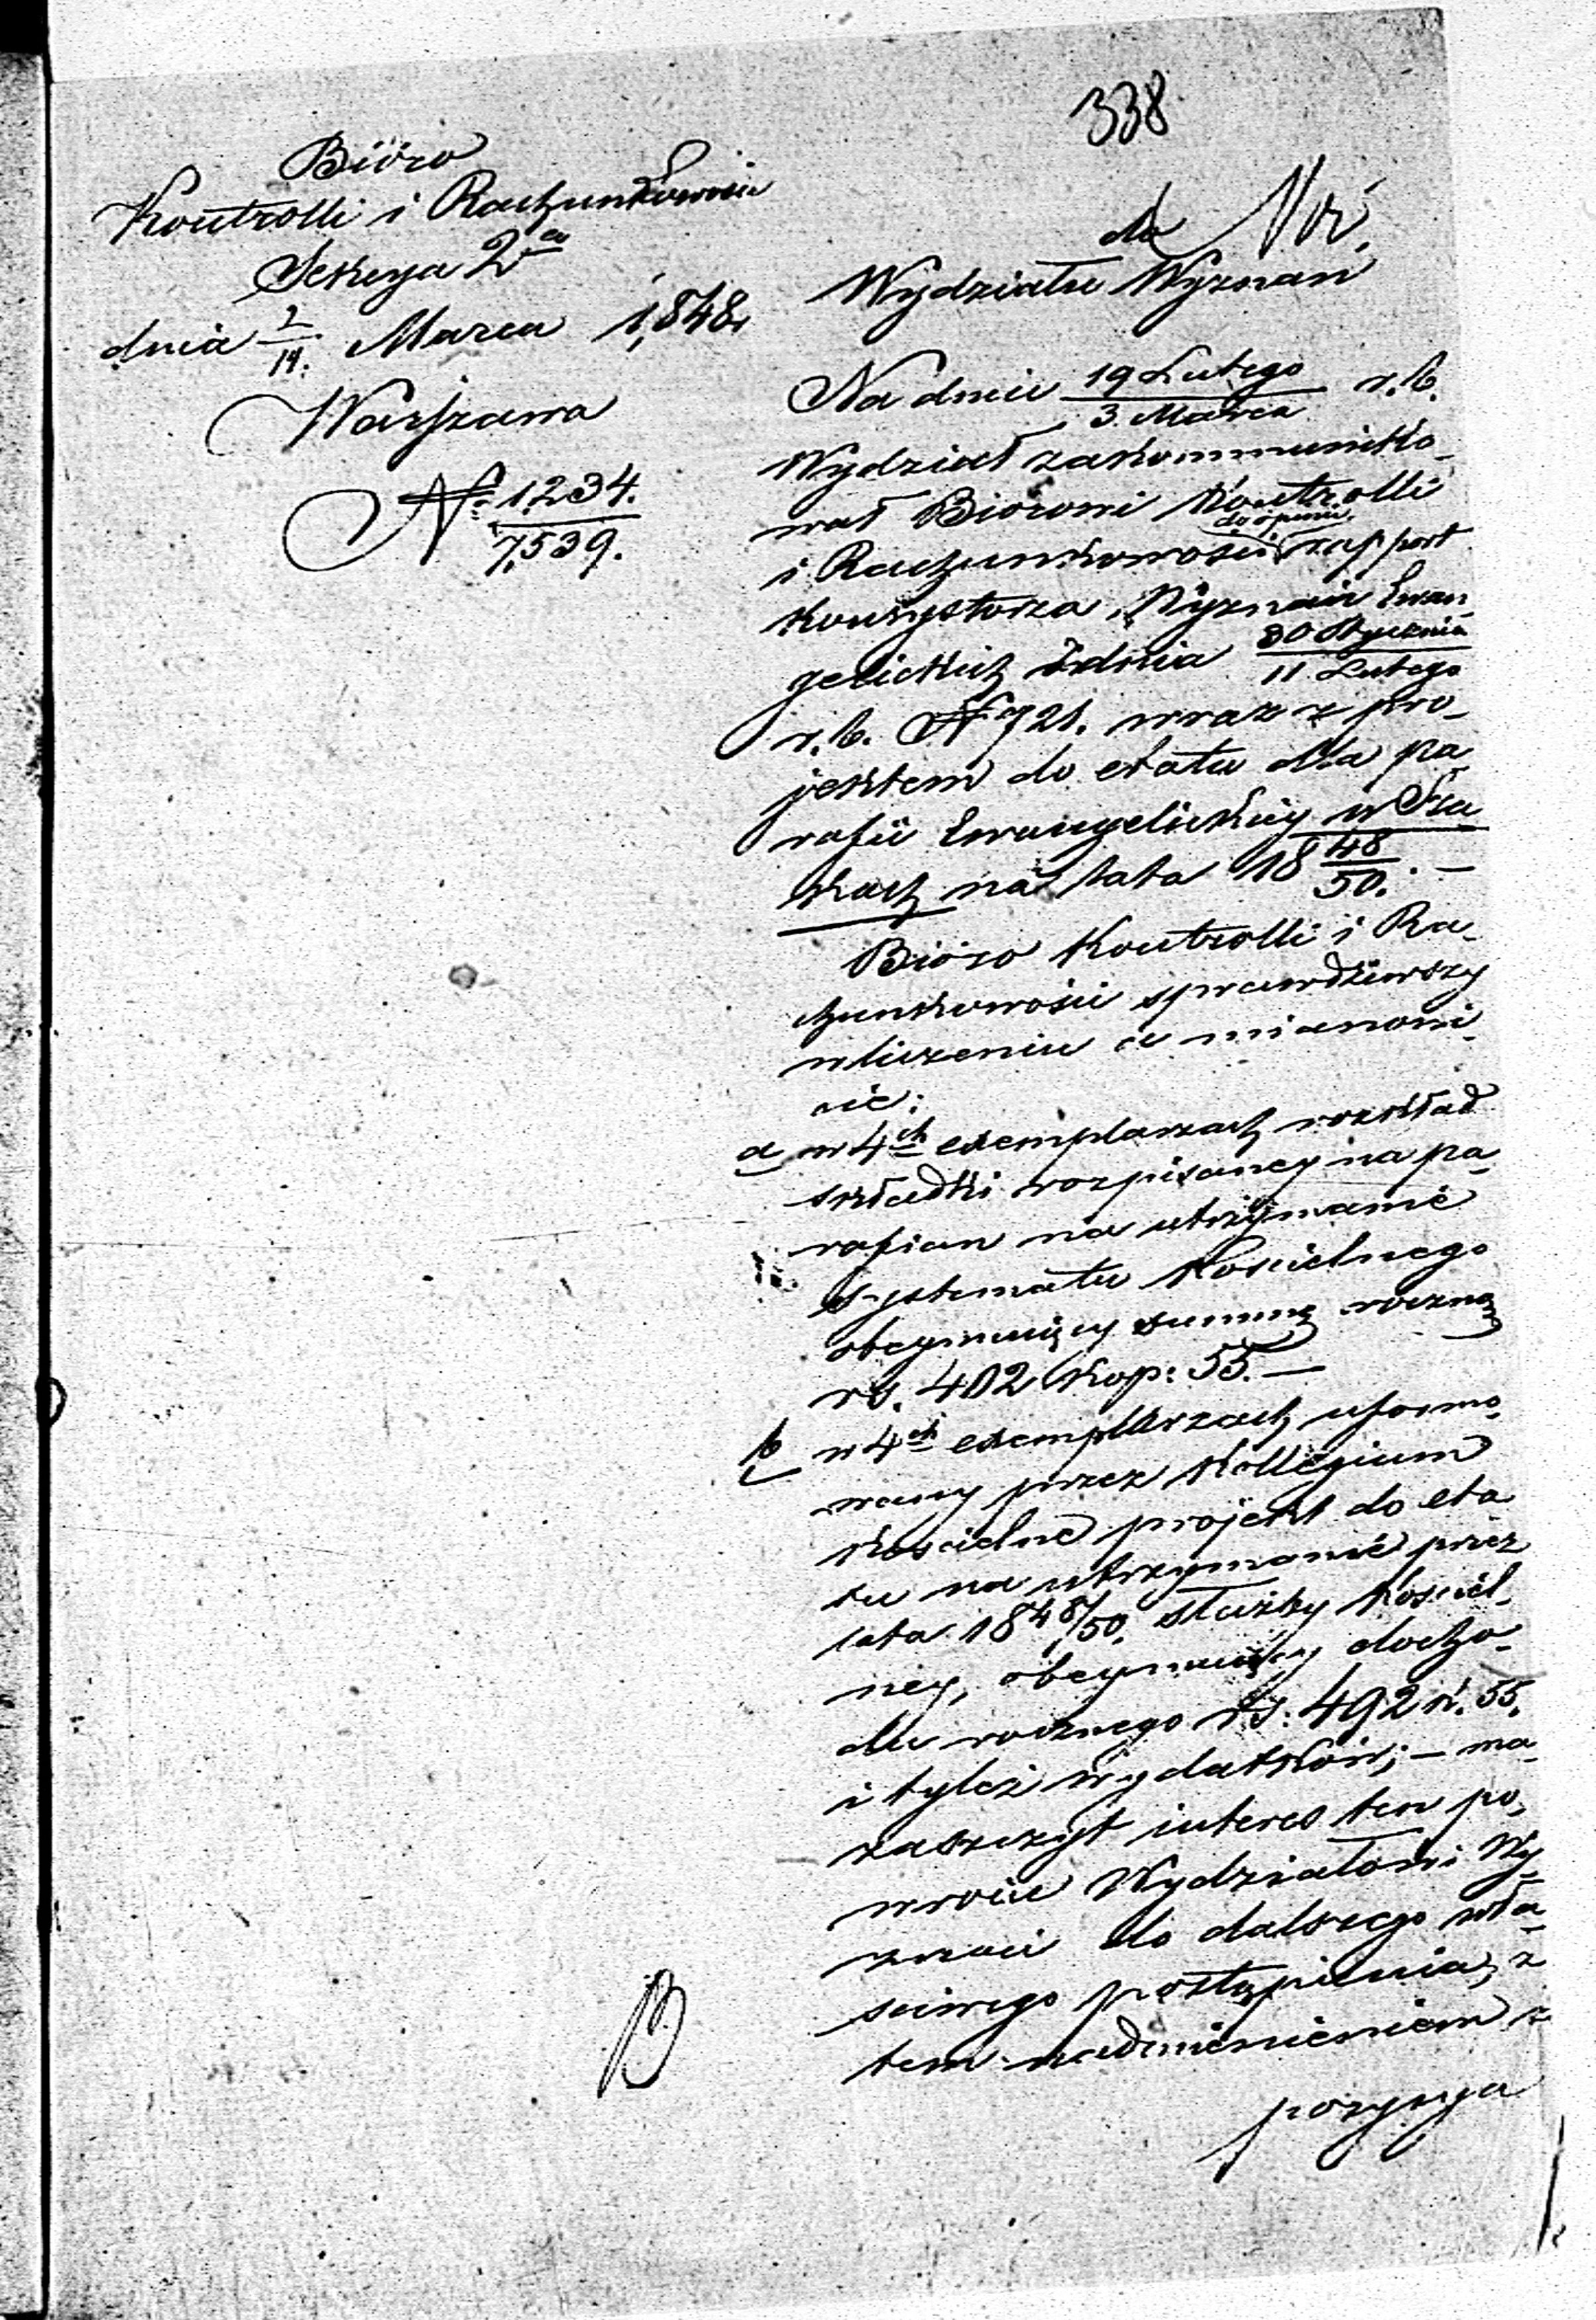 338
Bióro
Kontrolli i Rachunkowości
Sekcya 2a
dnia 2/14 Marca 1848
Warszawa
N: 1234.
7,539.
do
Wydziału Wyznań
Na dniu 19 Lutego / 3 Marca r. b.
Wydział zakommuniko-
wał Biórowi Kontrolli
i Rachunkowości rapport
Konsystorza Wyznań Ewan-
gelickich z dnia 30 Stycznia / 11 Lutego
r. b. N 721. wraz z pro-
jektem do etatu dla pa-
rafii Ewangelickiéy w Ża-
kach na lata 18 48/50. —
Bióro Kontrolli i Ra-
chunkowości sprawdziwszy
w liczeniu a mianowi-
cie:
a w 4ch exemplarzach rozkład
składki rozpisaney na pa-
rafian na utrzymanie
systematu Kościelnego
obeymuiący summę roczną
rs. 402 kop: 55. —
b w 4ch exemplarzach uformo-
wany przez Kollegium
Kościelne projekt do eta-
tu na utrzymanie przez
lata 1848/50. służby Kościel-
ney, obeymuiący docho-
du rocznego rs: 492 k. 55.
i tyleż wydatków; — ma
zaszczyt interes ten po-
wrócić Wydziałowi Wy-
znań do dalszego wła-
sciwego postąpienia, z
tem nadmienieniem z
pozycya